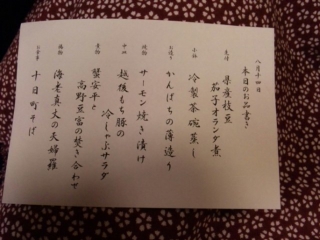 八月十四日
本日のお品書き
先付
県産枝豆
茄子オランダ煮
小鉢
冷製茶碗蒸し
お造り
かんぱちの薄造り
焼物
サーモン焼き漬け
中皿
越後もち豚の
冷しゃぶサラダ
煮物
蟹安平と
高野豆富の焚き合わせ
揚物
海老真丈の天婦羅
お食事
十日町そば